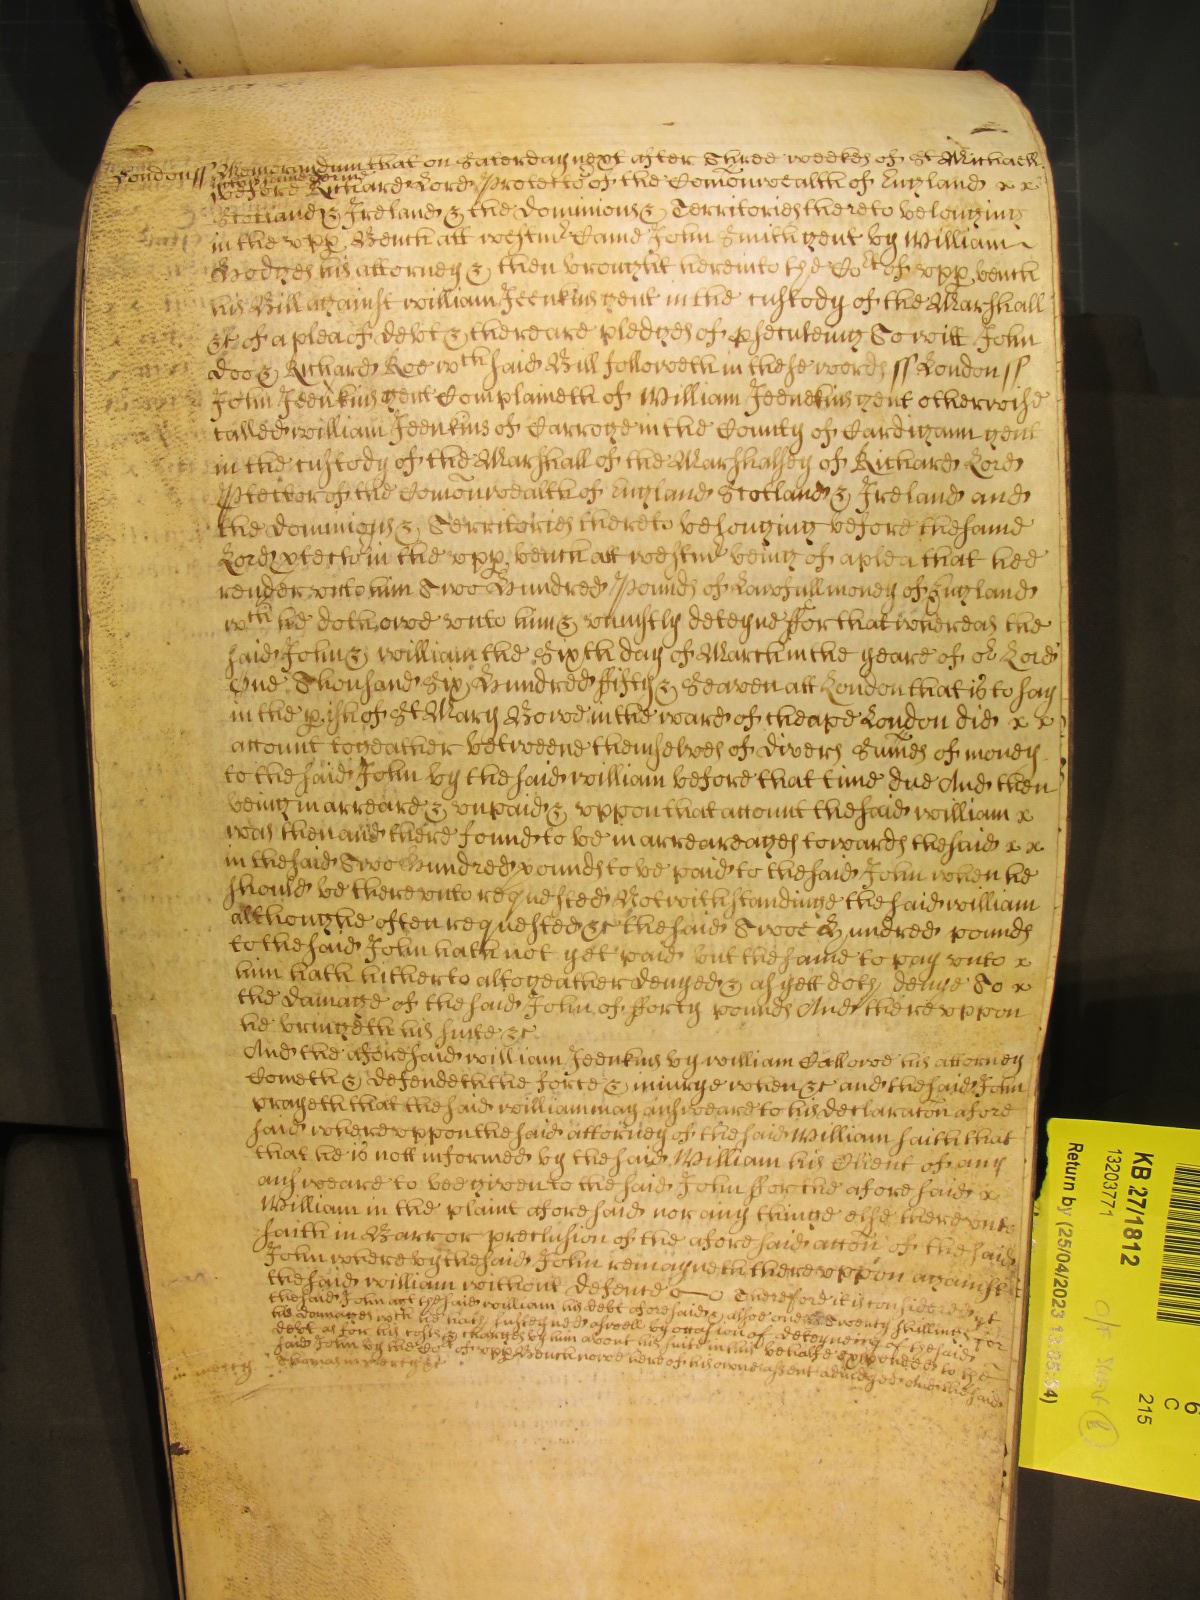 London ss Memorandum that on Saterday next after Three weekes of St Michaell
before Richard Lord Protector of the Comonwealth of England x x
Scotland & Ireland & the Dominions & Territories thereto belonging
in the upp. Bench att westmr Came John Smith gent by William
Hodges his attorney & then brought here into the Cort of upp. bench
his Bill against william Jeenkins gent in the custody of the Marshall
&c of a plea of debt & there are pledges of p'secuteing To witt John
Doo & Richard Roe wch said Bill followeth in these words ss London ss
John Jeenkins gent Complaineth of William Jeenekins gent otherwise
called william Jeenkins of Carroge in the County of Cardigann gent
in the custody of the Marshall of the Marshalsey of Richard Lord
Ptector of the Comonwealth of England Scotland & Ireland and
the Dominions & Territories thereto belonging before the same
Lord Ptector in the upp. bench att westmr being of a plea that hee
render unto him Twoe Hundred Pounds of Lawfull money of England
wch he doth owe unto him & uniustly deteyne ffor that whereas the
said John & william the Sixth day of March in the yeare of or Lord
One Thousand Six Hundred ffifty & Seaven att London that is to say
in the p.ish of St Mary Bowe in the ward of Cheape London did x x
account togeather betweene themselves of divers Sumes of money
to the said John by the said william before that time due And then
being in arreare & unpaid & uppon that account the said william x
was then and there found to be in arreareages towards the said x x
in the said Twoe Hundred pounds to be paid to the said John when he
should be thereunto requested Notwithstandinge the said william
although he often requested &c the said Twoe Hundred pounds
to the said John hath not yet paid but the same to pay unto x
him hath hitherto altogeather denyed & as yett doth denye To x
the damage of the said John of fforty pounds And thereuppon
he bringeth his suite &c
And the aforesaid william Jeenkins by william Callowe his attorney
Cometh & defendeth the force & iniurye when &c and the said John
prayeth that the said william may answeare to his declaracon afore
said whereuppon the said attorney of the said William saith that
that he is nott informed by the said William his Client of any
answeare to bee given to the said John ffor the aforesaid x
William in the plaint aforesaid nor any thinge else thereunto
saith in Barr or preclusion of the aforesaid accon of the said
John whereby the said John remayneth thereuppon against
the said william without defence Therefore it is considered yt
the said John agt the said william his debt aforesaid & alsoe one & Twenty shillings for
his damages wch he hath susteyned aswell by occasion of deteyneing of the said
debt as for his costs & charges by him about his suite in this behalfe expended to the
said John by the Cort of upp Bench nowe here of his owne assent adiudged And the said
in mercy william in mercy &c
KB 27/1812
13203771
Return by (25/04/2023 13:05:54)
6
C
215